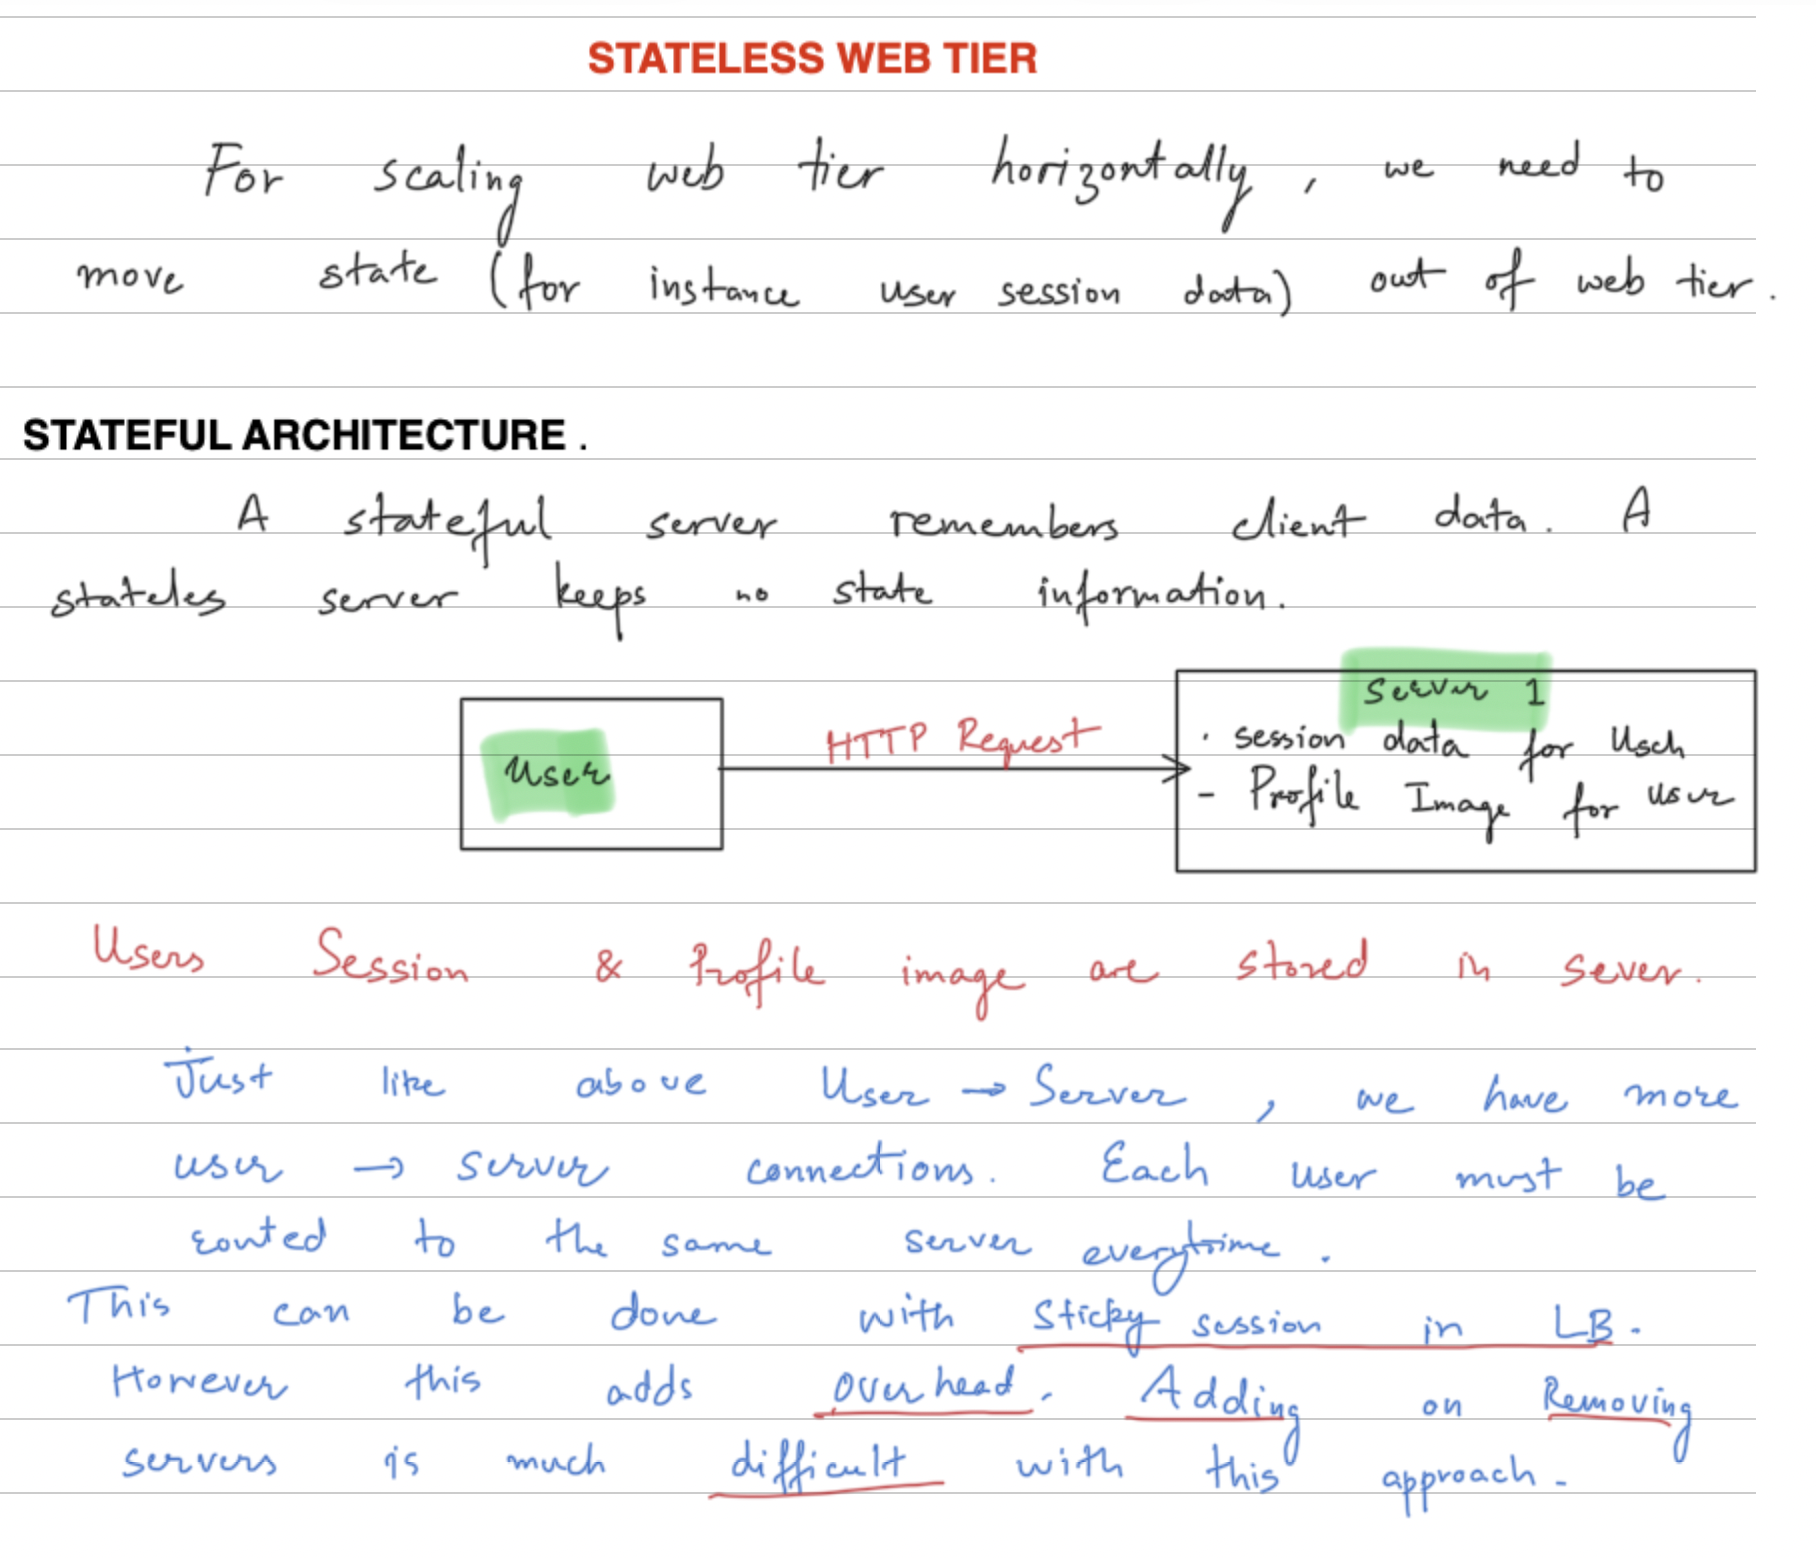 STATELESS WEB TIER
For scaling web tier horizontally, we need to
move state (for instance user session data) out of web tier.
STATEFUL ARCHITECTURE .
A stateful server remembers client data. A
stateles server keeps no state information.
User
HTTP Request
Server 1
· session data for
- Profile Image for user
Users Session & Profile image are stored in sever.
Just like above User → Server , we have more
user → server connections. Each user must be
routed to the same server everytime.
This can be done with Sticky session in LB.
However this adds overhead. Adding on Removing
servers is much difficult with this approach.